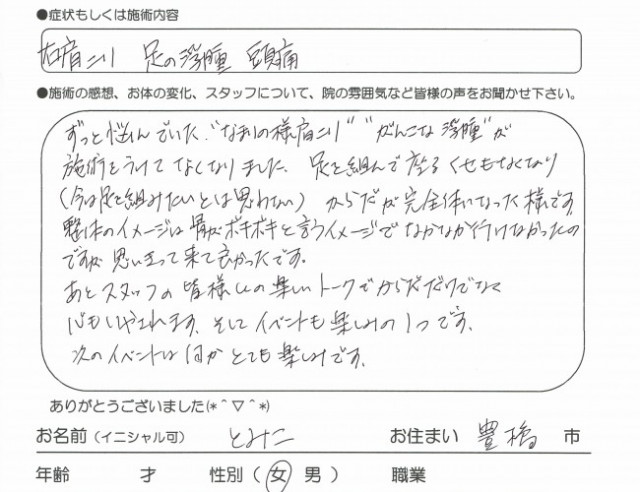 ●症状もしくは施術内容
右肩こり 足の浮腫 頭痛
●施術の感想、お体の変化、スタッフについて、院の雰囲気など皆様の声をお聞かせ下さい。
ずっと悩んでいた、"なまりの様肩こり" "がんこな浮腫"が
施術をうけてなくなりました、足を組んで座るくせもなくなり
(今は足を組みたいとは思わない) からだが完全体になった様です
整体のイメージは骨がボキボキと言うイメージでなかなか行けなかったの
ですが思いきって来て良かったです。
あとスタッフの皆様との楽しいトークでからだだけでなく
心もいやされます、そしてイベントも楽しみの1つです。
次のイベントは何かとても楽しみです。
ありがとうございました(*^▽^*)
お名前(イニシャル可) とみこ お住まい 豊橋 市
年齢 才 性別(女 男) 職業